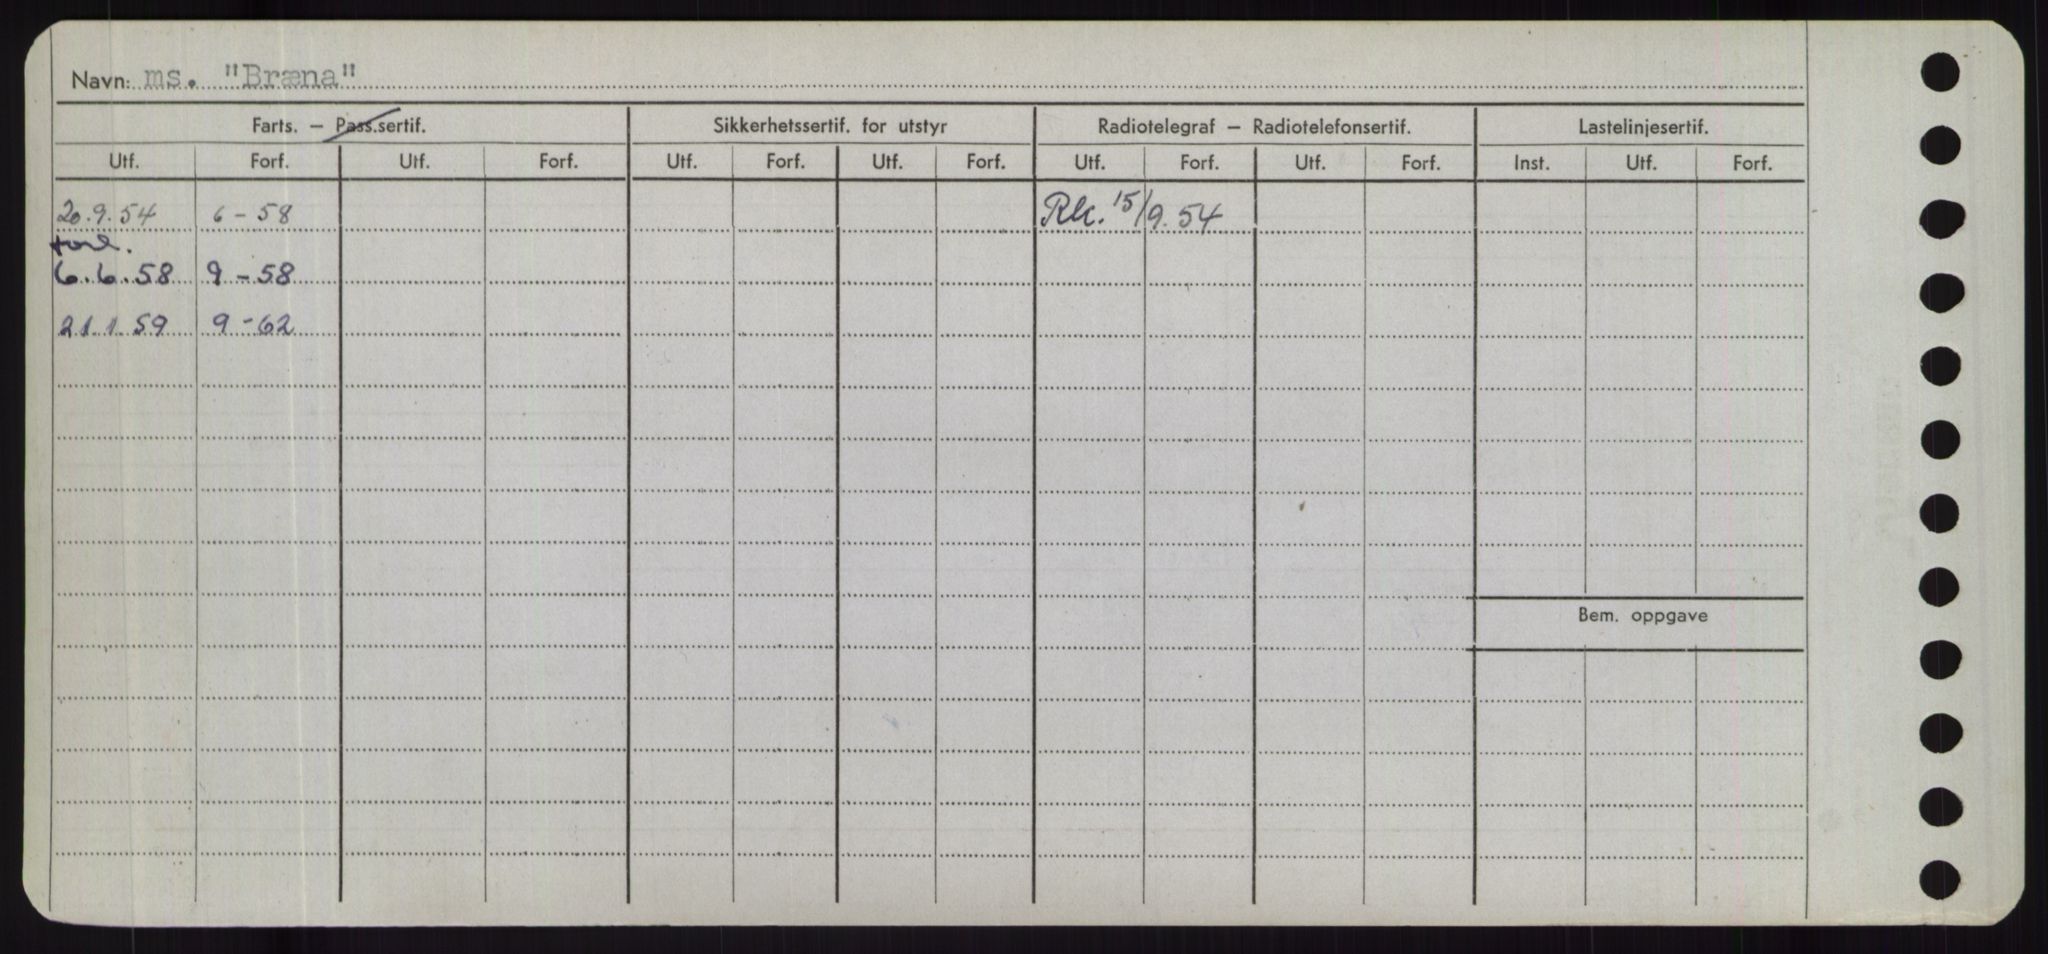 Navn: ms. "Bræna"
Farts. – Pass.sertif. Sikkerhetssertif. for utstyr Radiotelegraf – Radiotelefonsertif. Lastelinjesertif.
Utf. Forf. Utf. Forf. Utf. Forf. Utf. Forf. Utf. Forf. Utf. Forf. Inst. Utf. Forf.
20.9.54 6-58 Rk. 15/9.54
forl.
6.6.58 9-58
21.1.59 9-62
Bem. oppgave